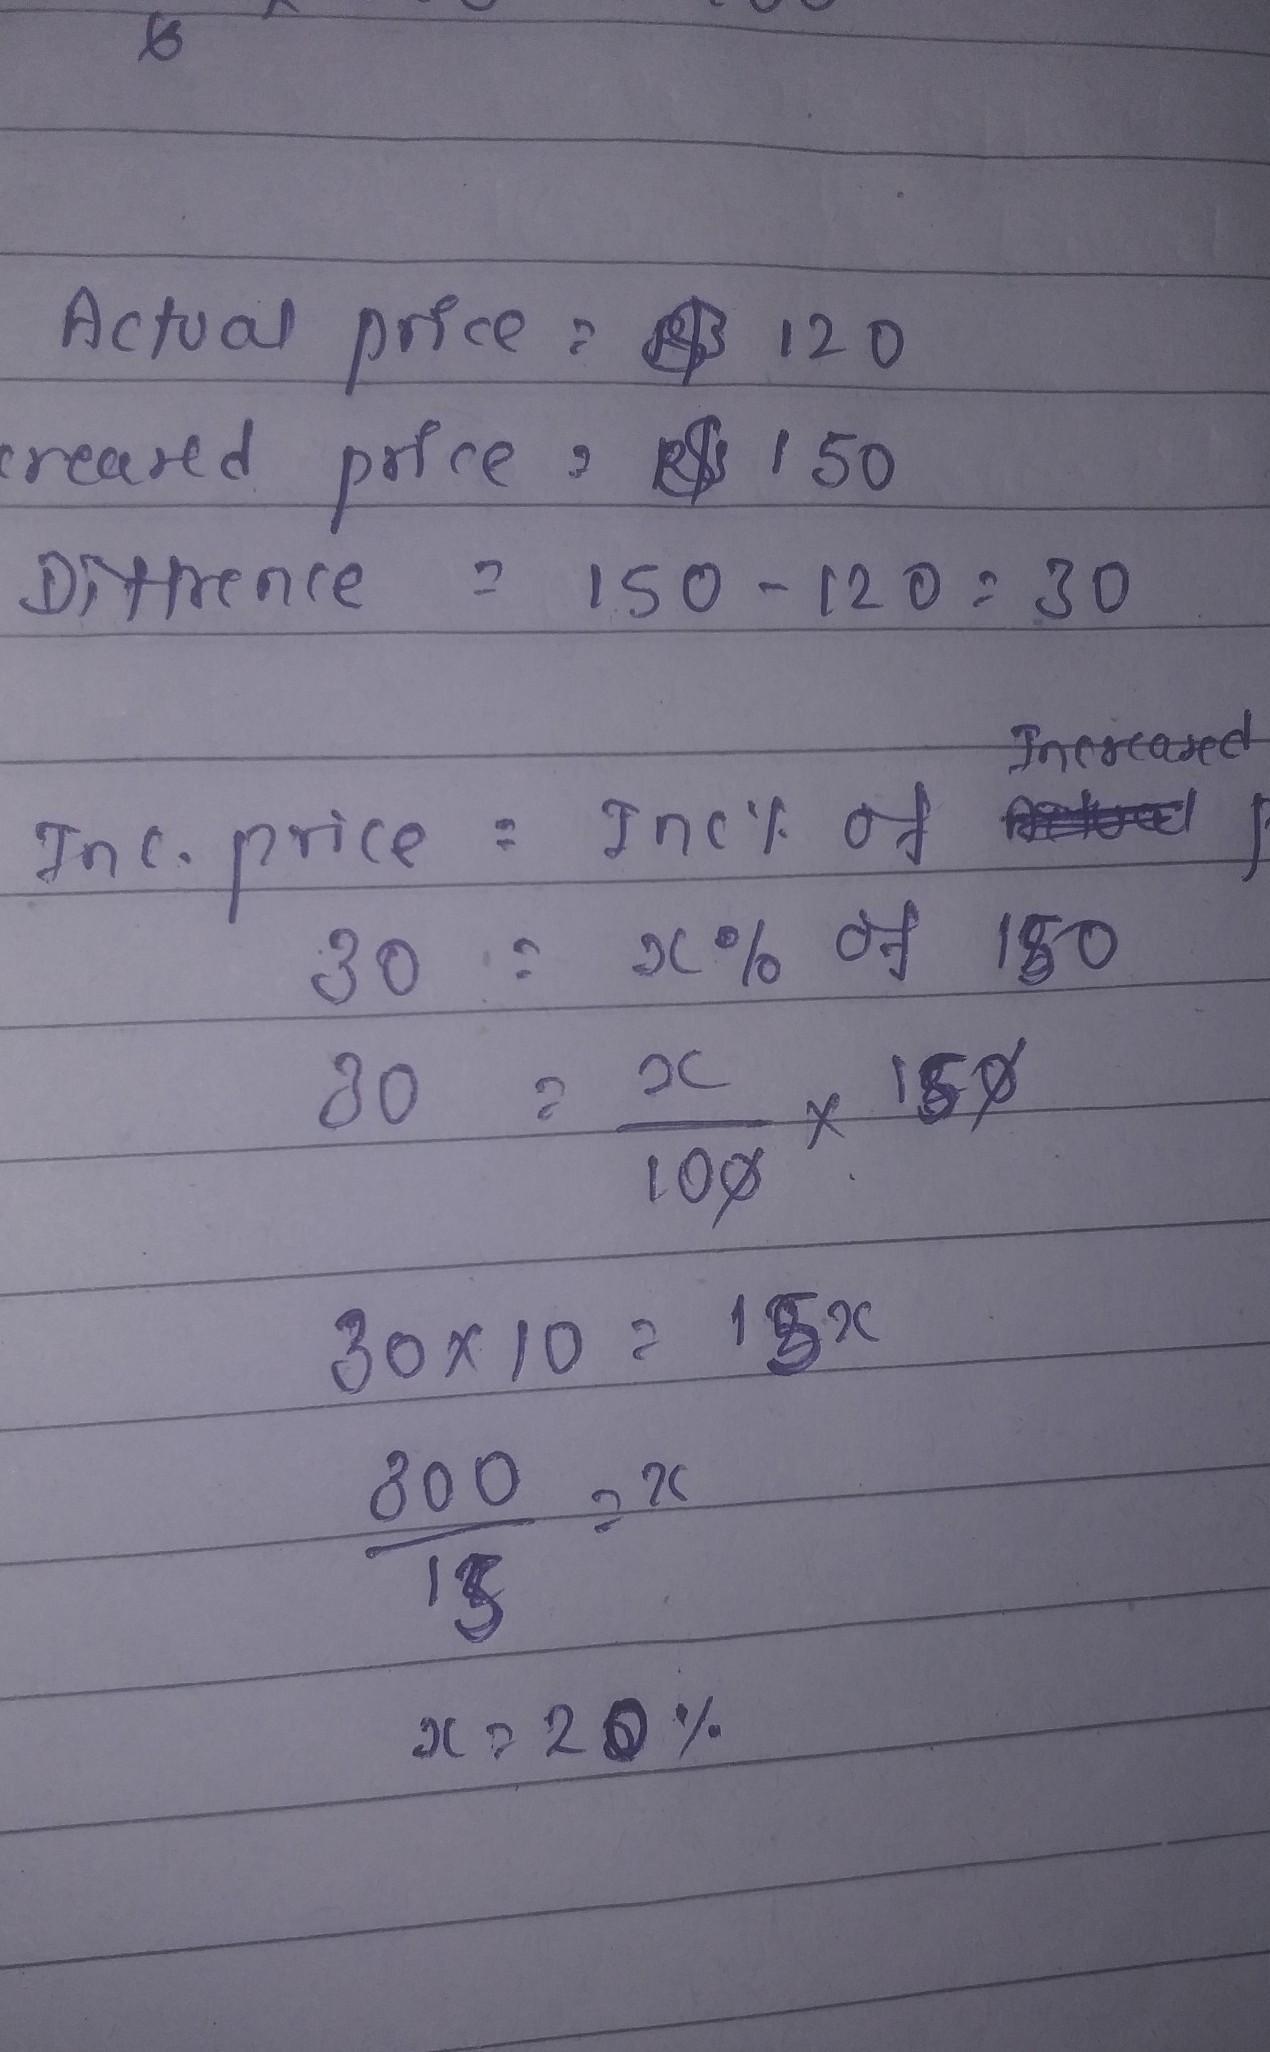 6
Actual price = 120
creased price = 150
Diffrence = 150 - 120 = 30
Increased
Inc. price = Inc% of
30 = x% of 150
30 = x/100 × 150
30 × 10 = 15x
300/15 = x
x = 20%